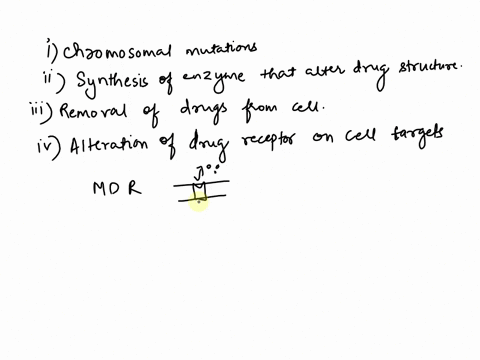 i) Chromosomal mutations
ii) Synthesis of enzyme that alter drug structure.
iii) Removal of drugs from cell.
iv) Alteration of drug receptor on cell targets
MDR